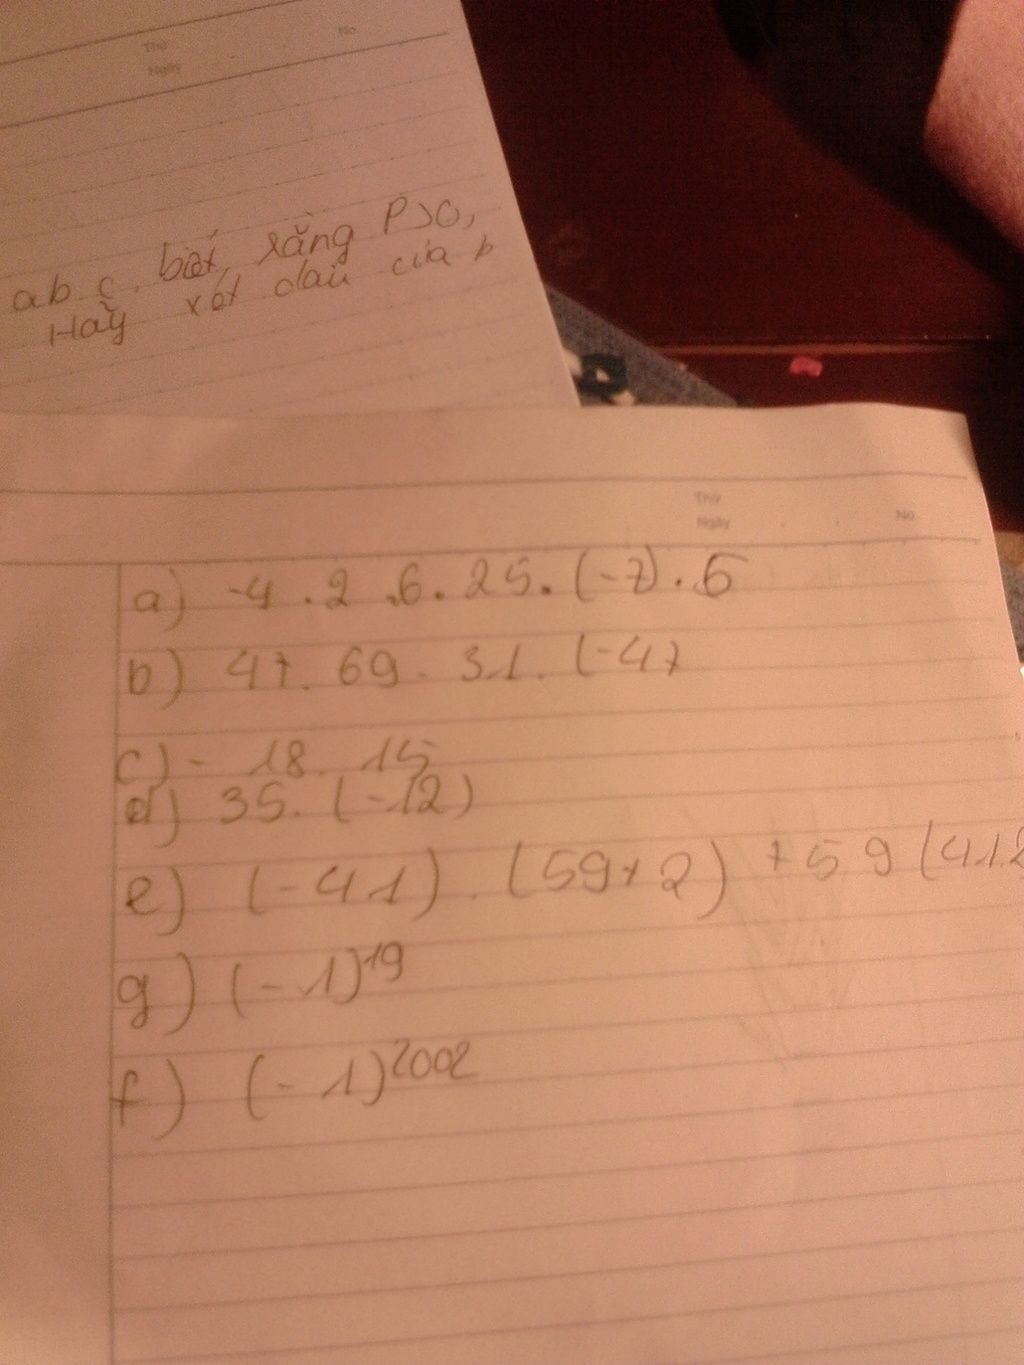 Thứ
Ngày
No
ab c. biết rằng P>0,
Hãy xét dấu của b
Thứ
Ngày
No
a) -4 . 2 .6. 25. (-7) . 5
b) 47. 69 - 31. (-47
c) - 18. 15
d) 35. (-12)
e) (-41) . (59+2) +59(41.2
g) (-1)¹⁹
f) (-1)²⁰⁰²